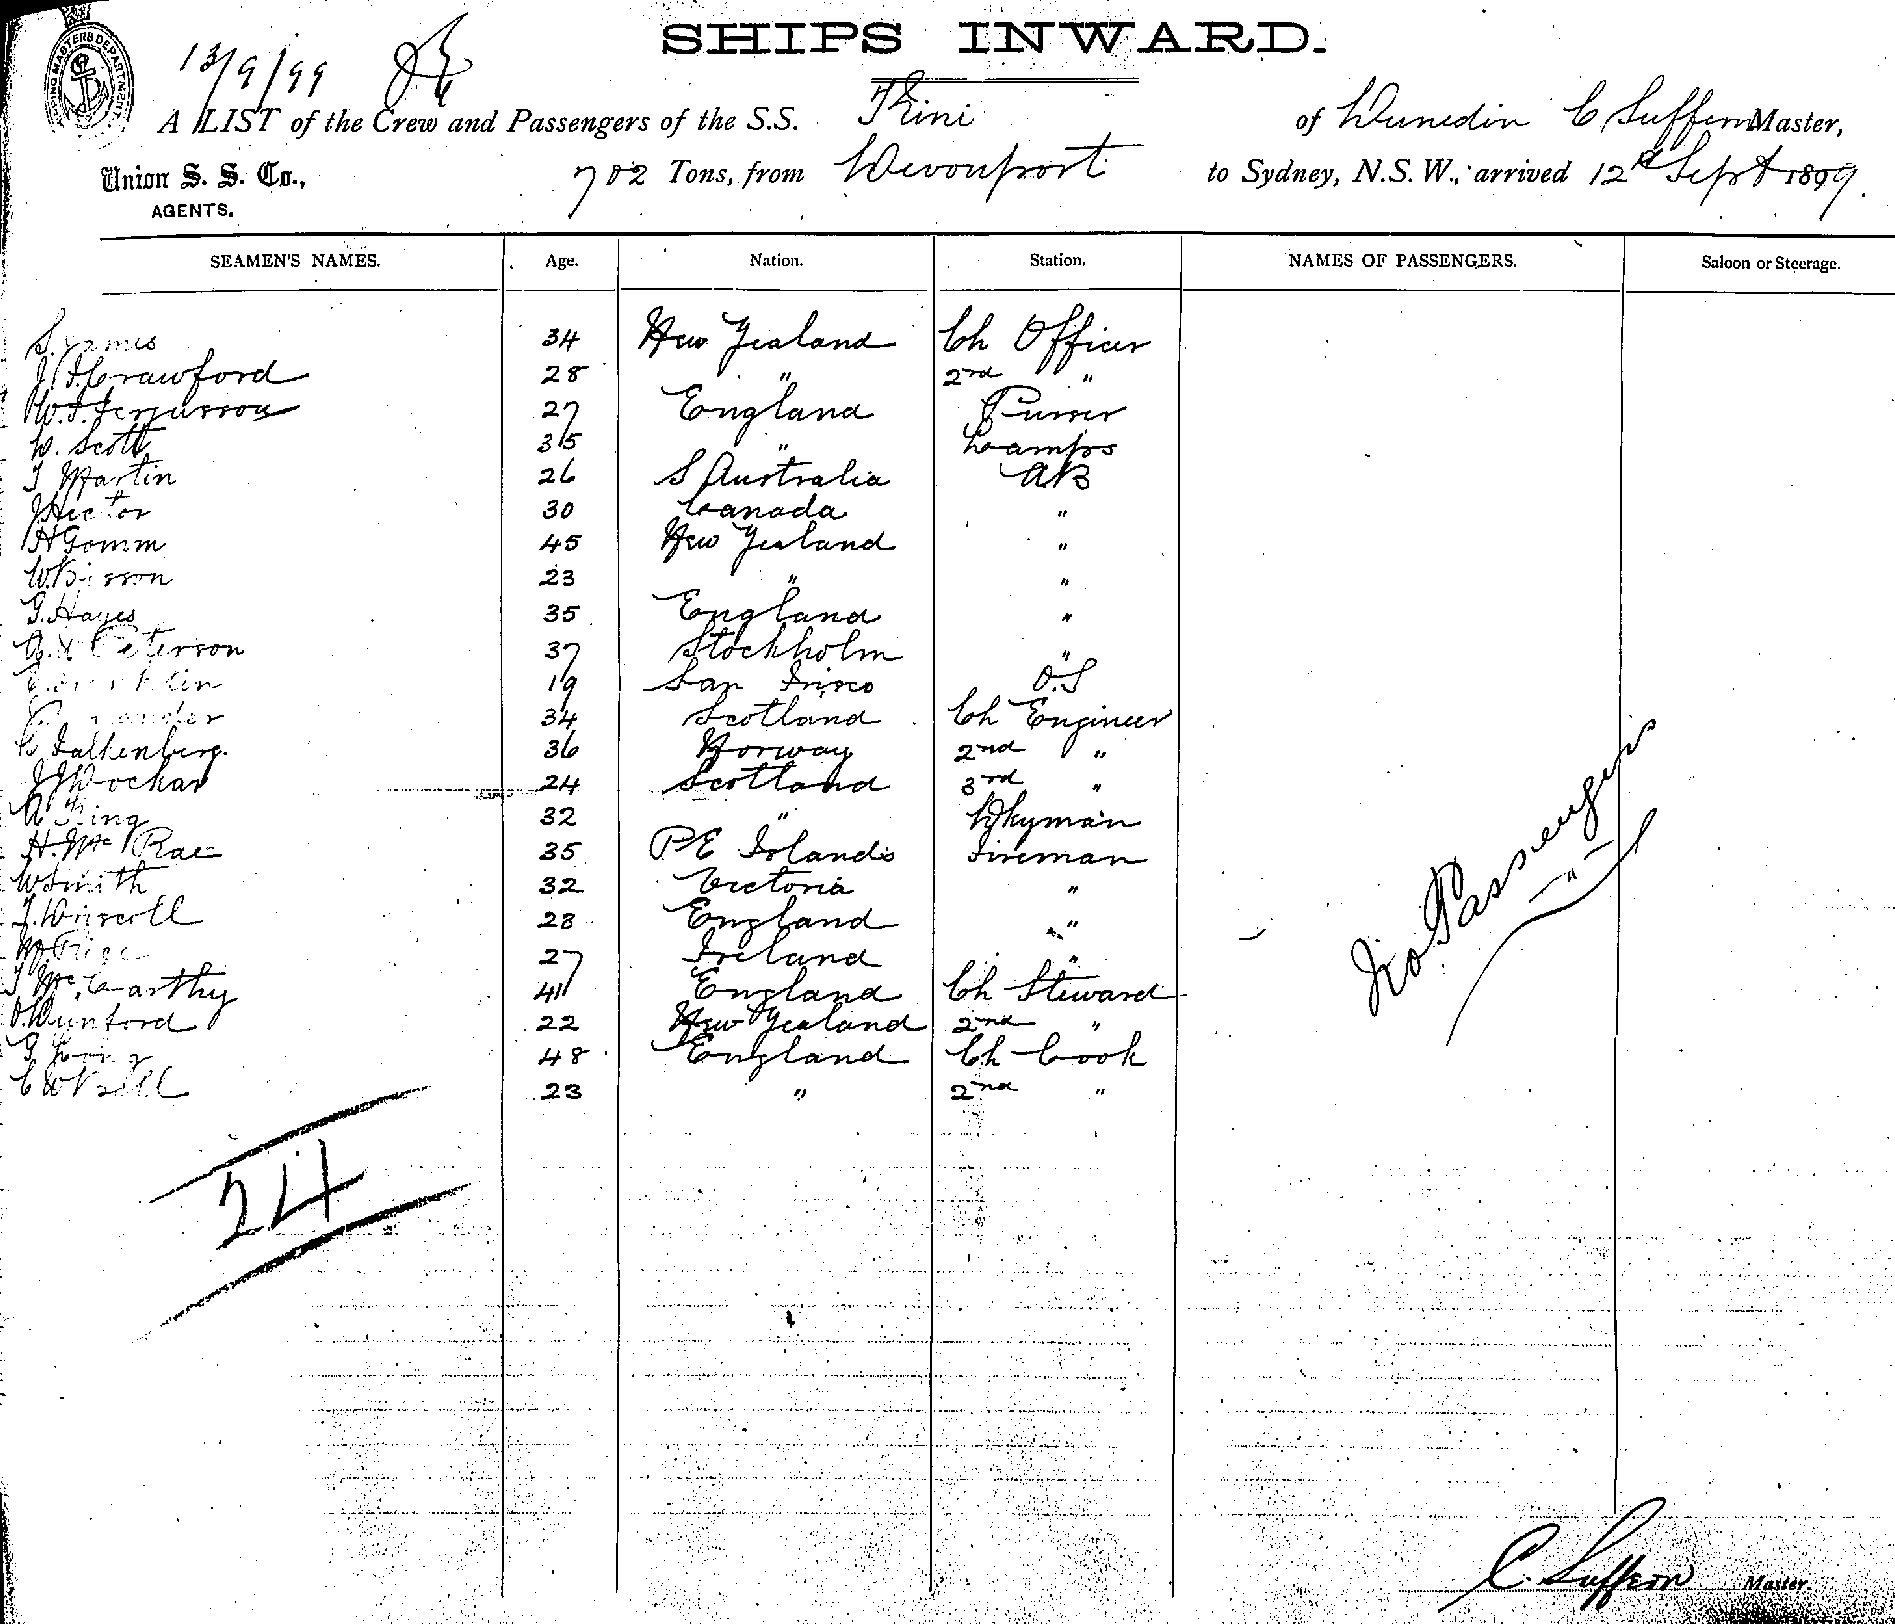 SHIPS INWARD.
13/9/99
A LIST of the Crew and Passengers of the S.S. of Dunedin C Suffern Master,
Union S. S. Co., AGENTS.
702 Tons, from Devonport to Sydney, N.S.W., arrived 12th Sept 1899.
SEAMEN'S NAMES. Age. Nation. Station. NAMES OF PASSENGERS. Saloon or Steerage.
S. James 34 New Zealand Ch Officer
Crawford 28 " 2nd "
Fergusson 27 England Purser
W. Scott 35 " Lamps
T Martin 26 S Australia AB
J Hector 30 Canada "
H Gomm 45 New Zealand "
W. Bisson 23 " "
G. Hayes 35 England "
Peterson 37 Stockholm "
19 San Frisco O.S
34 Scotland Ch Engineer
C Falkenberg 36 Norway 2nd "
24 Scotland 3rd "
A King 32 " Dkyman
H. Mc Rae 35 P E Islands Fireman
W Smith 32 Victoria "
J. Driscoll 28 England "
27 Ireland "
T McCarthy 41 England Ch Steward
Dunford 22 New Zealand 2nd "
48 England Ch Cook
23 " 2nd "
No Passengers
"
24
C. Suffern Master.